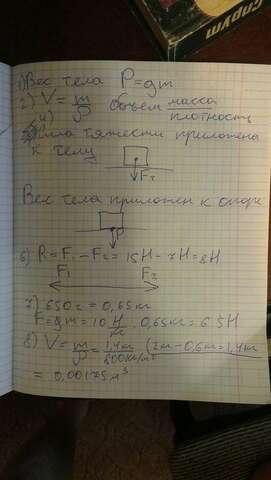 Спрут
1) Вес тела P=gm
2) V = m/ρ объём масса
4) плотность
Сила тяжести приложена
к телу
Fт
Вес тела приложен к опоре
P
6) R = F₁ - F₂ = 15Н - 7Н = 8Н
F₁ F₂
7) 650г = 0,65кг
F = gm = 10 Н/кг · 0,65кг = 6.5Н
8) V = m/ρ = 1,4кг/800кг/м³ (2кг - 0,6кг = 1,4кг
= 0,00175м³